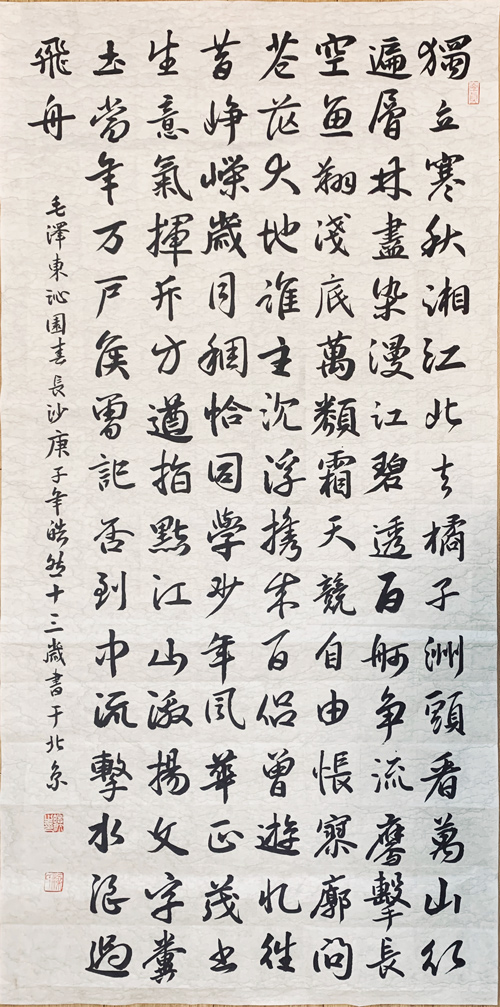 獨立寒秋湘江北去橘子洲頭看萬山紅
遍層林盡染漫江碧透百舸争流鷹擊長
空魚翔淺底萬類霜天競自由悵寥廓問
蒼茫大地誰主沉浮攜來百侣曾遊憶往
昔崢嶸歲月稠恰同學少年風華正茂書
生意氣揮斥方遒指點江山激揚文字糞
土當年万戶侯曾記否到中流擊水浪遏
飛舟
毛澤東沁園春長沙庚子年皓然十三歲書于北京